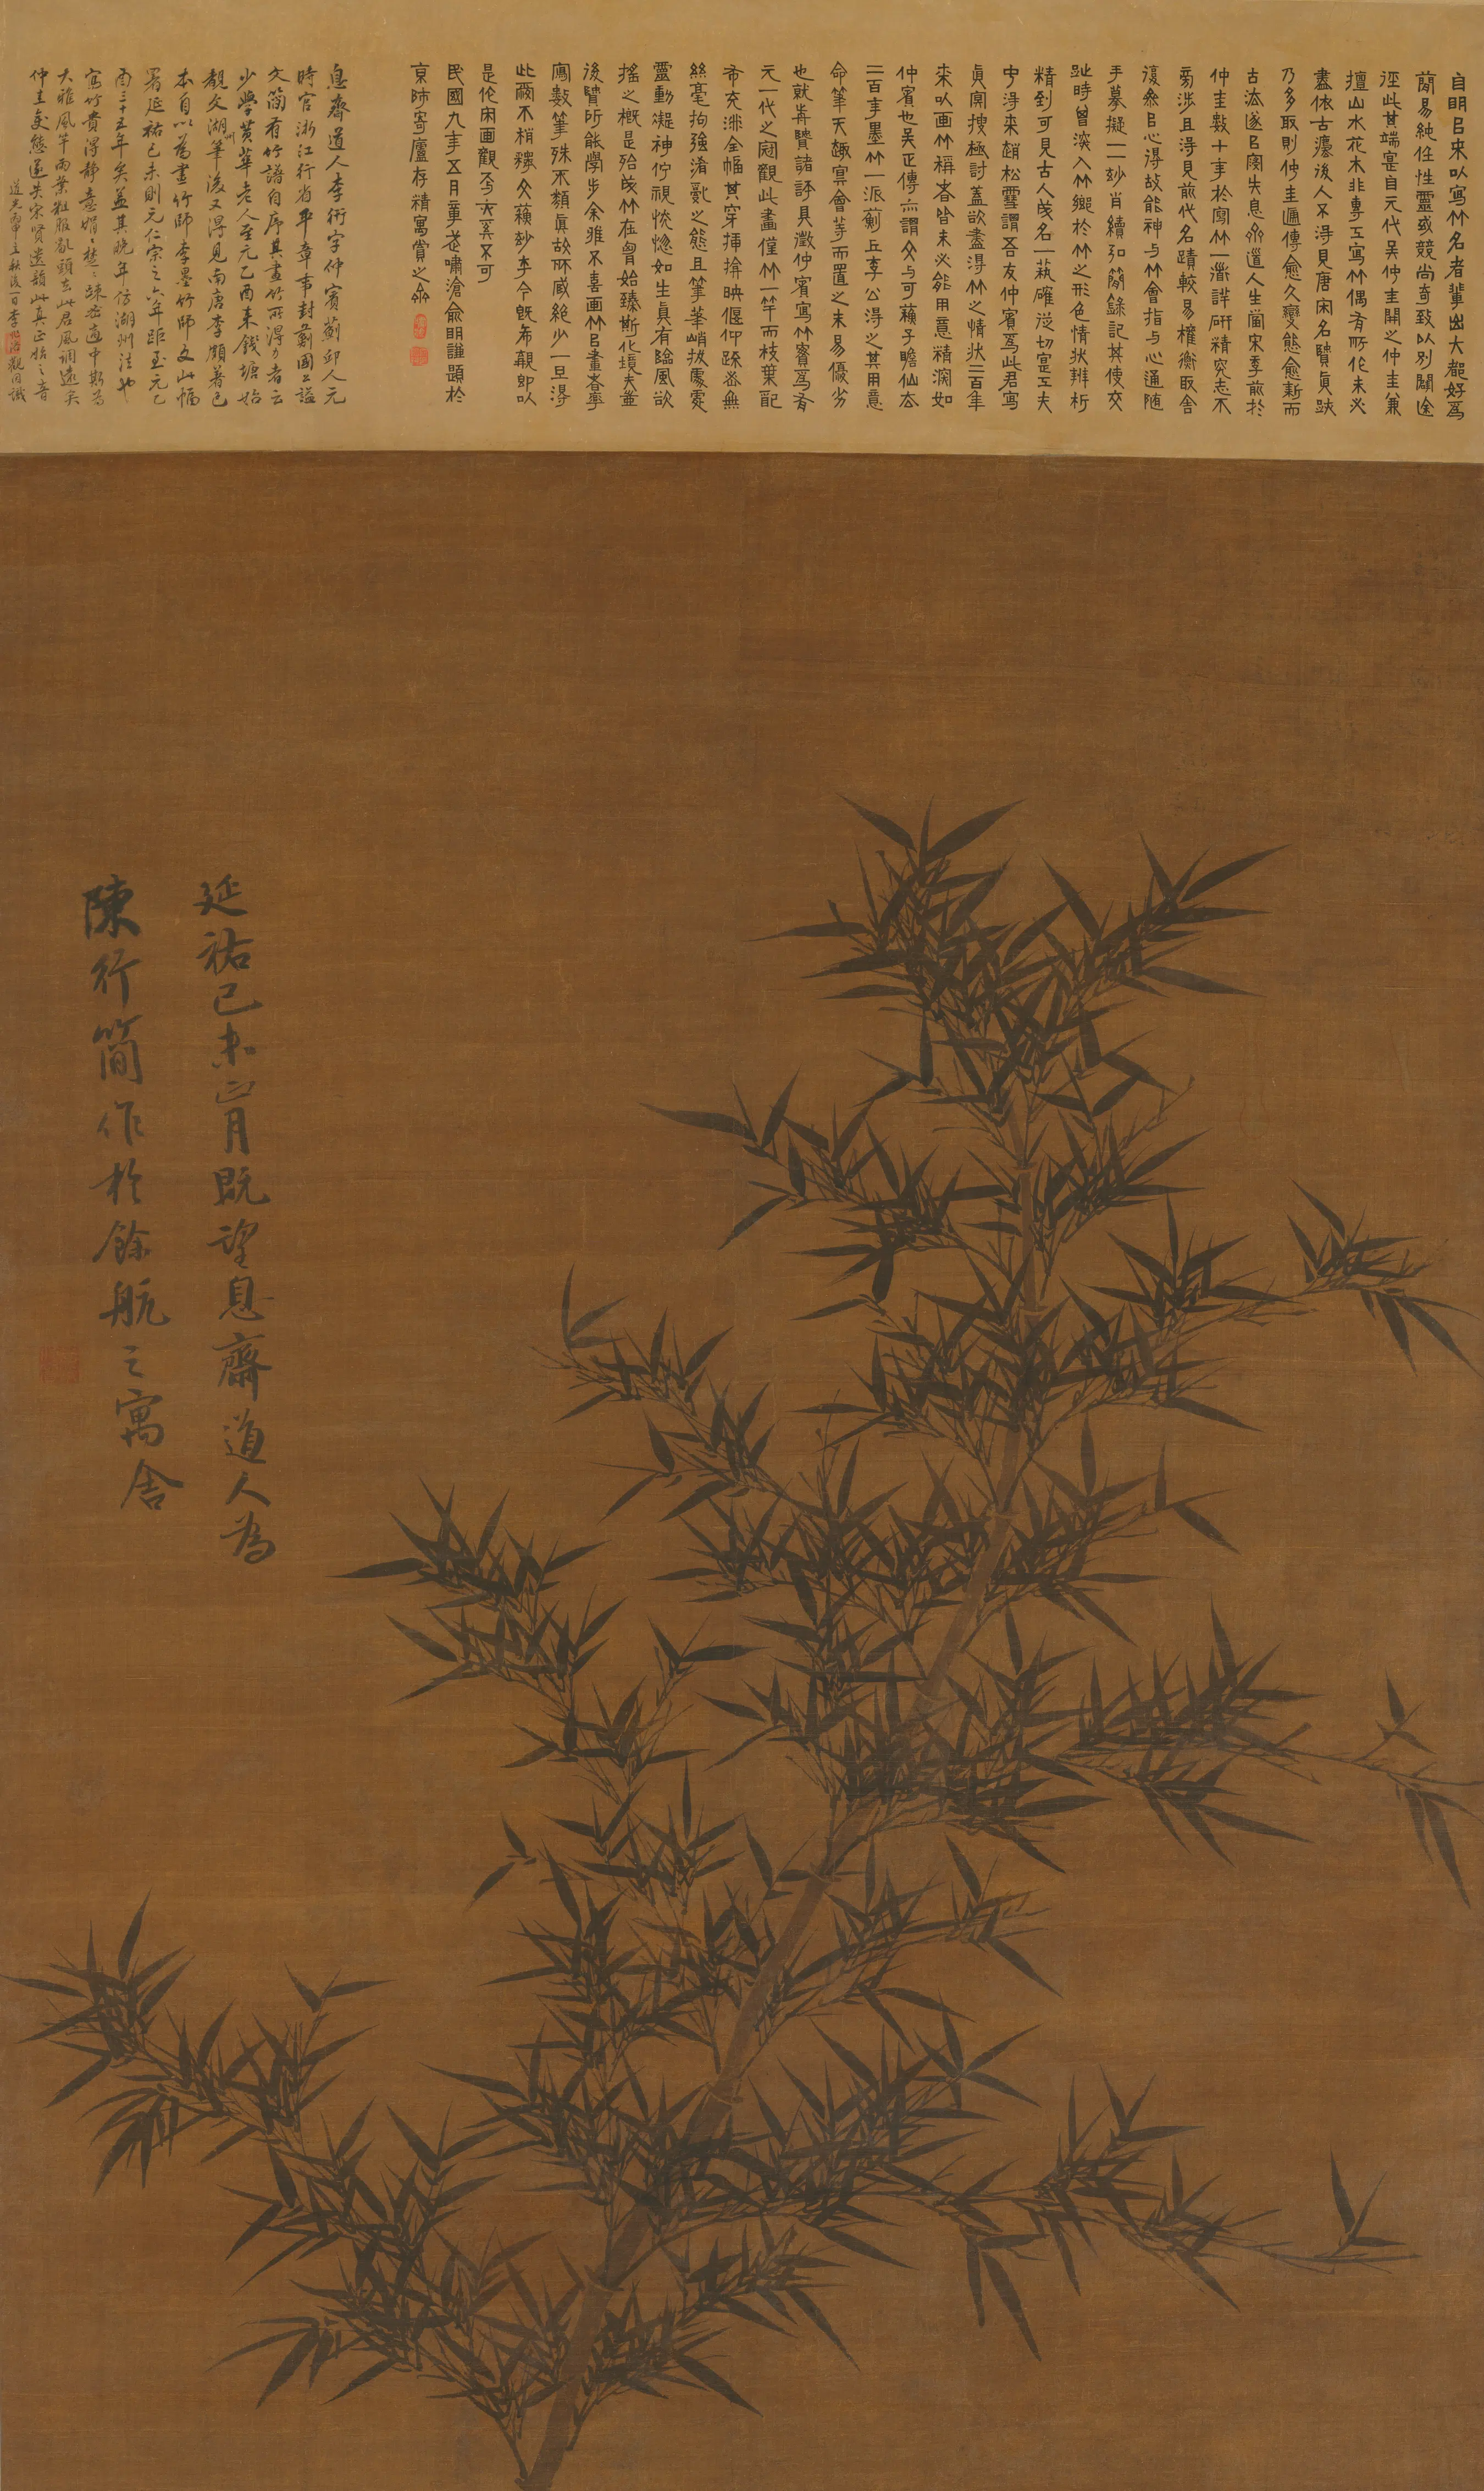 自明㠯来以寫竹名者輩出大都好為
簡易純任性靈或競尚奇致以別闢途
徑此其端寔自元代吴仲圭開之仲圭兼
擅山水花木非専工寫竹偶有所作未必
盡依古灋後人不淂見唐宋名賢真跡
乃多取則仲圭遞傳愈久變態愈新而
古法遂㠯寖失息齋道人生當宋季前於
仲圭數十年於寫竹一灋詳研精究志不
旁涉且淂見前代名蹟較易權衡取舍
復㠯心淂故能神与竹會指与心通随
手摹擬一一妙肖續弘簡錄記其使交
趾時曾深入竹鄉於竹之形色情状辨析
精到可見古人成名一萟確從切寔工夫
中淂来趙松雪謂吾友仲賓為此君寫
真冥搜極討蓋欲盡淂竹之情状二百年
来以画竹稱者皆未必能用意精深如
仲賓也吴正傳亦謂文与可蘇子瞻仙去
二百年墨竹一派薊丘李公淂之其用意
命筆天趣冥會等而置之未易優劣
也就歬賢諸評具徵仲賓寫竹實為有
元一代之冠觀此畫僅竹一竿而枝葉配
布充滿全幅其穿插揜映偃仰疎密無
絲毫拘強淆亂之態且筆筆峭拔處處
靈動凝神佇視恍惚如生真有臨風欲
搖之概是殆成竹在胸始臻斯化境夫豈
後賢所能學步余雅不喜画竹㠯畫者率
寫數筆殊不類真故所藏絕少一旦淂
此不文蘇妙今既希覯即以
是作閑画觀不可
民國九年五月嘯滄俞明謹題於
京師寄廬存精寓賞之齋
息齋道人李衎字仲賓薊邱人元
時官浙江行省平章事封薊國公諡
文簡有竹譜自序其畫竹所得力者云
少學黄華老人至元乙酉来錢塘始
觀文湖州筆後又得見南唐李頗著色
本自以為畫竹師李墨竹師文此幅
署延祐己未則元仁宗之六年距至元乙
酉三十五年矣蓋其晚年仿湖州法也
寫竹貴得静意娟娟楚楚疎密適中斯為
大雅風竿雨葉粗服亂頭去此君風調遠矣
仲圭變態遂失宋賢遺韻此真正始之音
道光立秋後一日李觀因識
延祐己未正月既望息齋道人為
陳行簡作於餘杭之寓舍